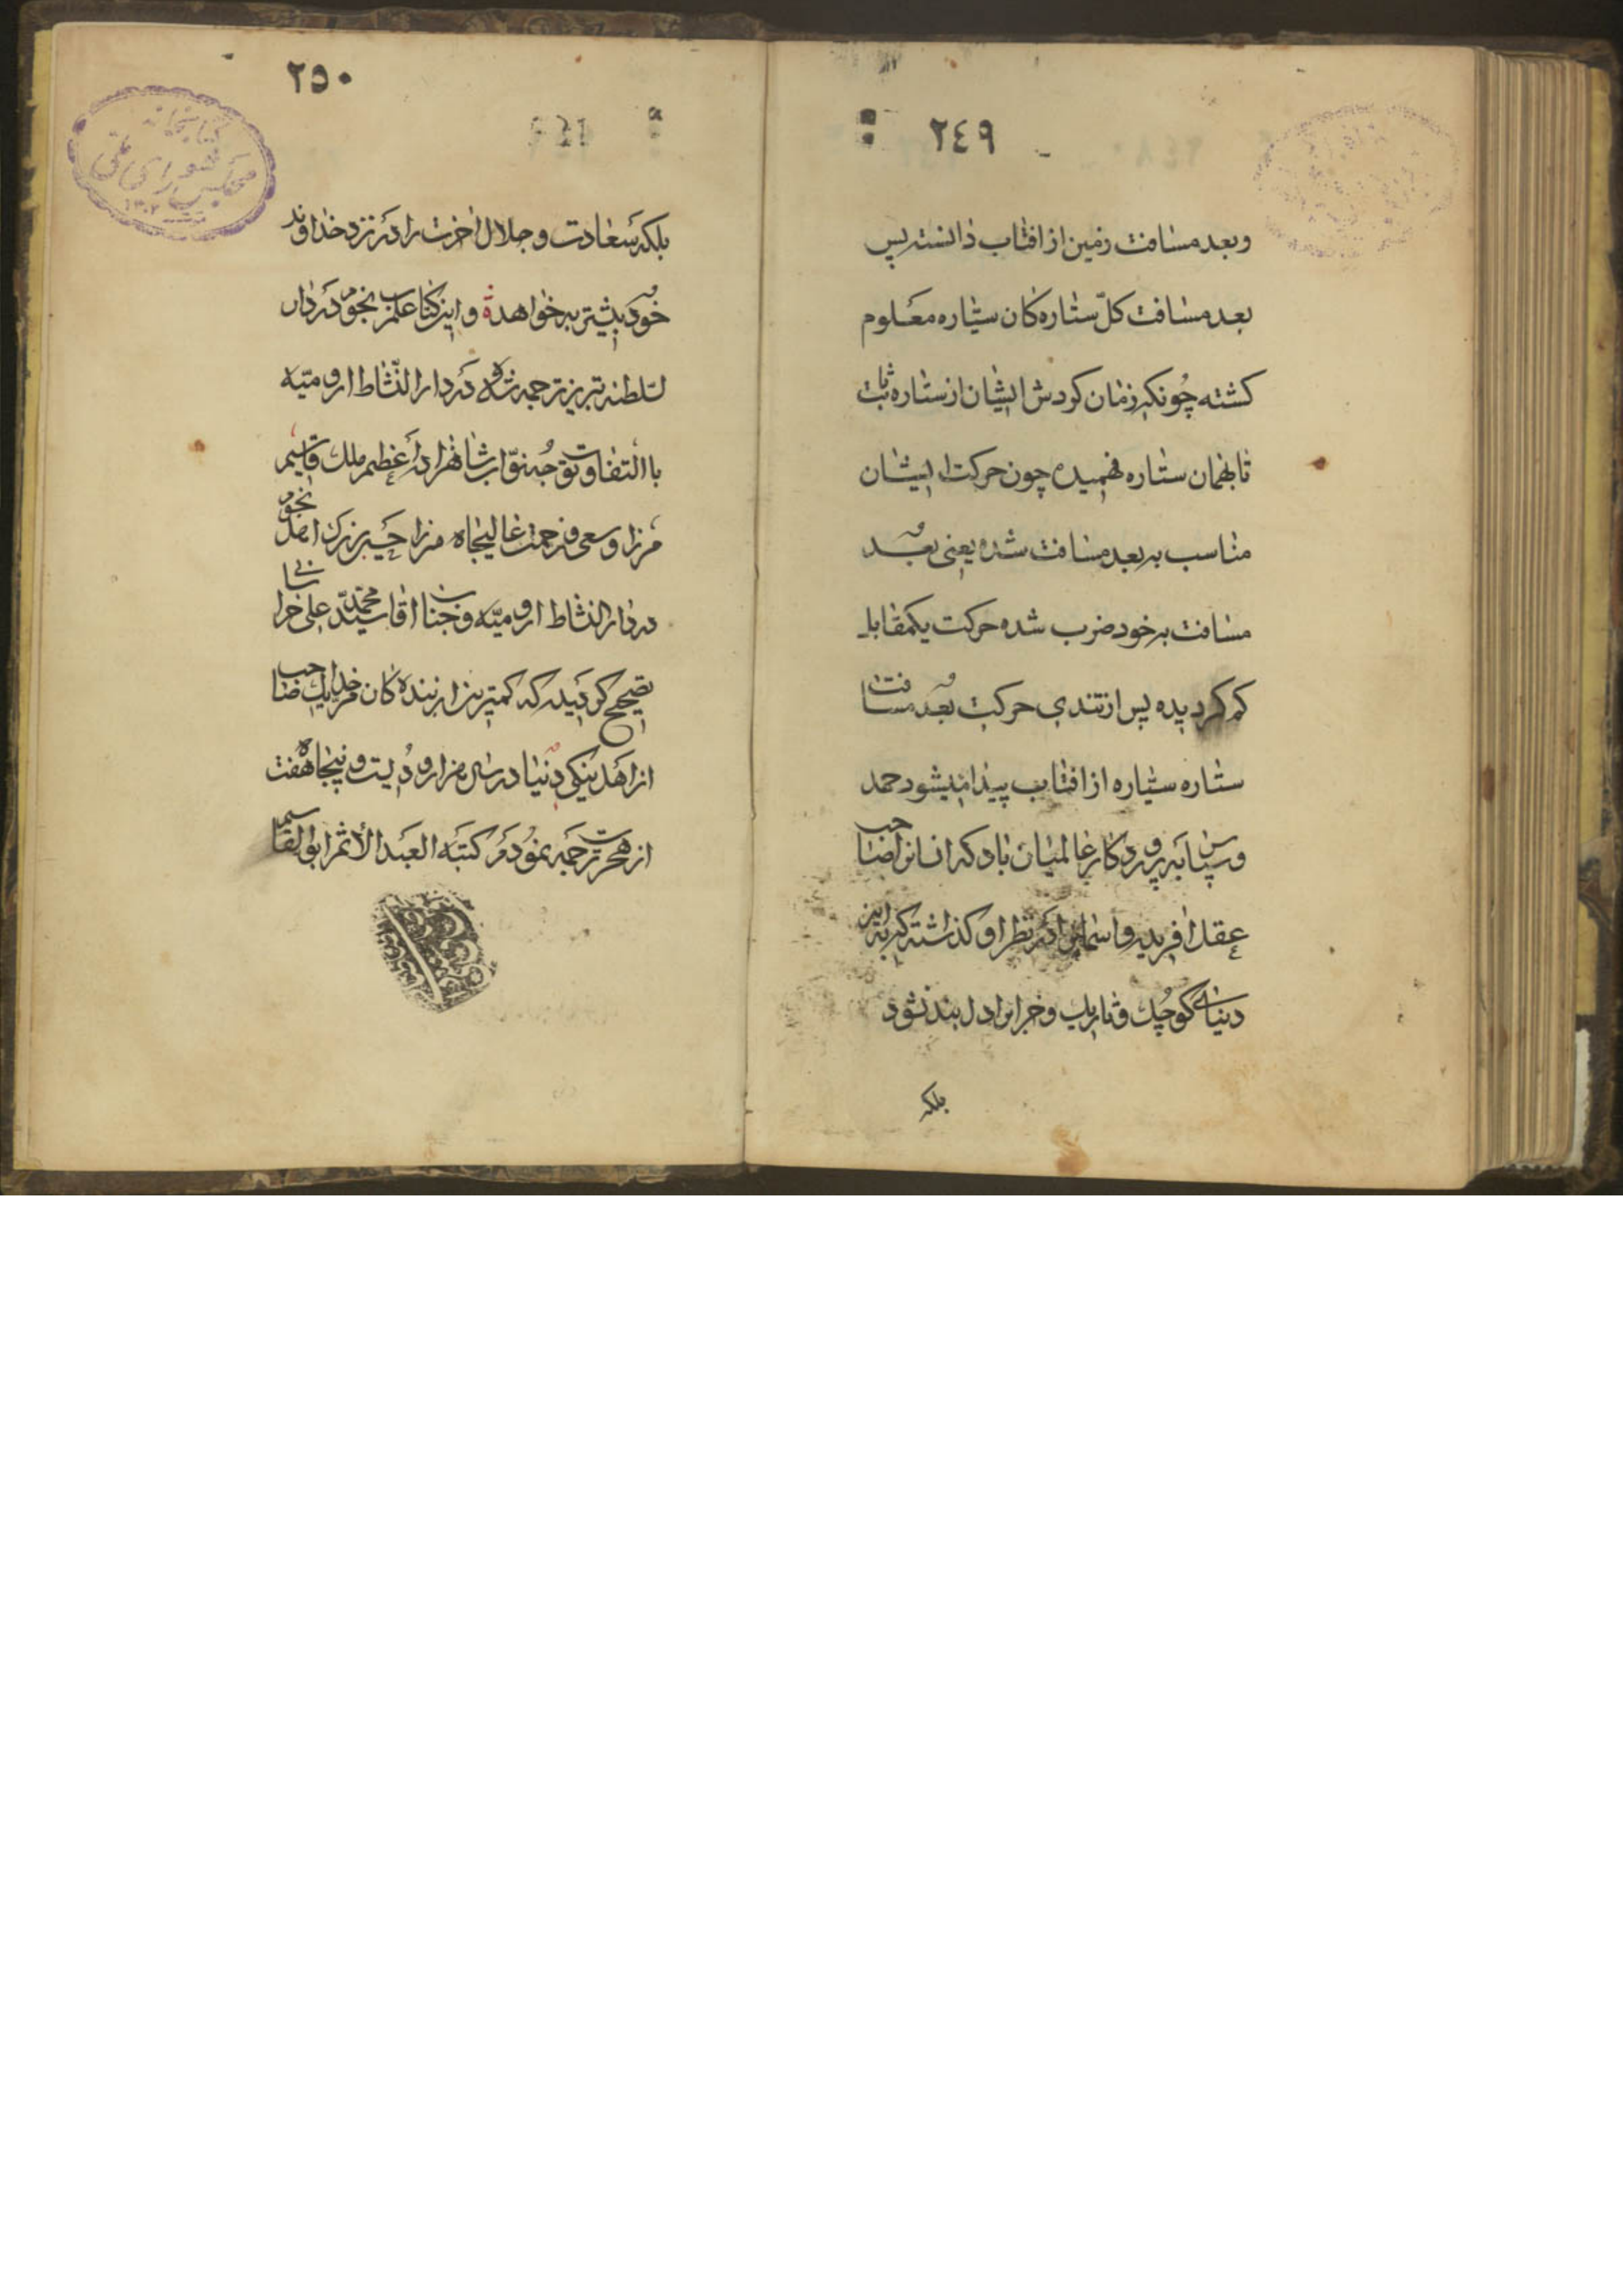 ٢٤٩
وبعد مسافت زمین از افتاب دانسته پس
بعد مسافت کلّ ستاره کان سیّاره معلوم
کشته چونکه زمان کردش ایشان از ستاره ثابت
تا بهمان ستاره فهمیده چون حرکت ایشان
مناسب به بعد مسافت شده یعنی بعد
مسافت بر خود ضرب شده حرکت یکمقابل
کم کردیده پس از تندی حرکت بعد مسافت
ستاره سیّاره از افتاب پیدا میشود حمد
وسپاس به پروردکار عالمیان باد که انسانرا صاحب
عقل افریده واسمانرا در نظر او کذاشته که به این
دنیای کوچک وتاریک وخراب دل بند نشود
بلکه
٢٥٠
بلکه سعادت وجلال اخرت را در نزد خداوند
خود بیشتر خواهد واین کتاب علم نجوم در دار
لسلطنه تبریز ترجمه شده و در دار النّشاط ارومیّه
با التفات وتوجه نوّاب شاهزاده اعظم ملک قاسم
مرزا وسعی وزحمت عالیجاه مرزا اصل نجوم
در دار النشاط ارومیّه وجناب اقا سید محمّد علی
تصحیح کردیده که کمترین از بنده کان خدا صاحب
از اهل ینکی دنیا در سال هزار ودویست وپنجاه هفت
از هجرت ترجمه نمودم کتبه العبد الأثم ابو القاسم
کتابخانه
مجلس شورای ملی